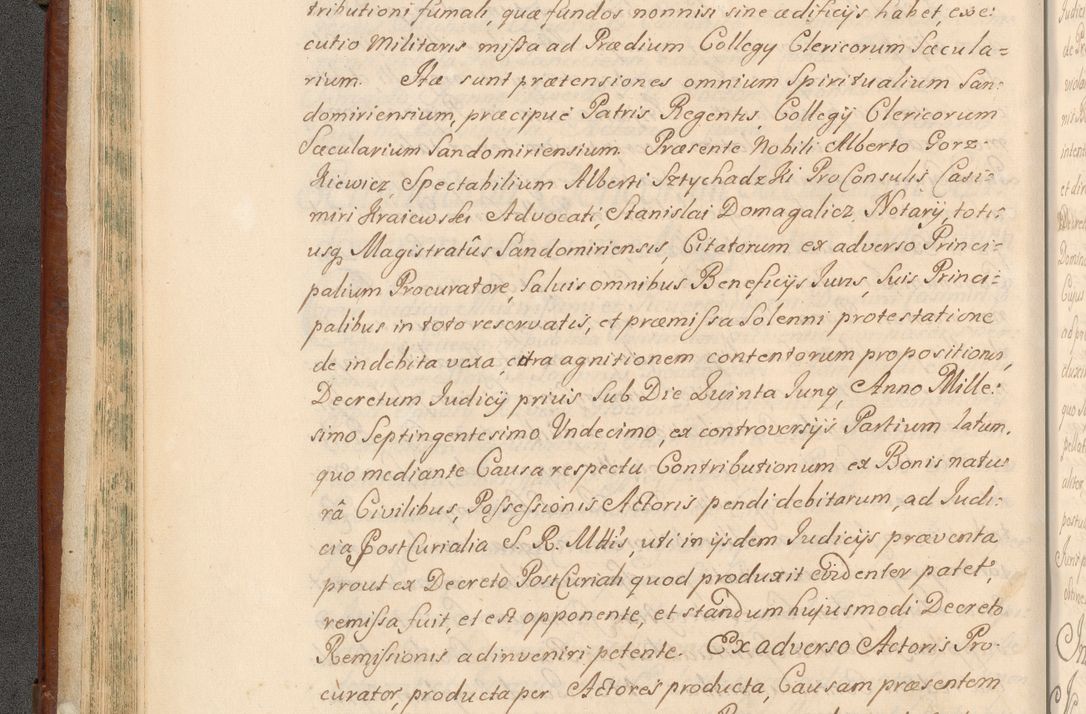 tributioni fumali, quæ fundos nonnisi sine ædificijs habet, exe:
cutio Militaris missa ad Prædium Collegy Clericorum Sæcula=
rium. Itæ sunt prætensiones omnium Spiritualium San:
domiriensium, præcipuè Patris Regentis, Collegij Clericorum
Sæcularium Sandomiriensium. Præsente Nobili Alberto Gorz:
kiewicz, Spectabilium Alberti Sztychadzki ProConsulis, Casi=
miri Kraiewski Advocati, Stanislai Domagalicz, Notarij, toti:
usq Magistratûs Sandomiriensis, Citatorum ex adverso Princi=
palium Procuratore, Saluis omnibus Beneficijs Iuris, Suis Princi=
palibus in toto reservatis, et præmissa Solenni protestatione
de indebita vexa, citra agnitionem contentorum propositionis,
Decretum Iudicij priùs Sub Die Quinta Iunij, Anno Mille:
simo Septingentesimo Undecimo, ex controversijs Partium latum,
quo mediante Causa respectu Contributionum ex Bonis natu
râ Civilibus, Possessionis Actoris pendi debitarum, ad Iudi:
cia PostCurialia S. R. Mttis, uti in ijsdem Iudicijs præventa
prout ex Decreto PostCuriali quod produxit evidenter patet,
remissa fuit, et est opponente, et standum hujusmodi Decreto
Remissionis adinveniri petente. Ex adverso Actoris Pro:
curator, producta per Actores producta, Causam præsentem